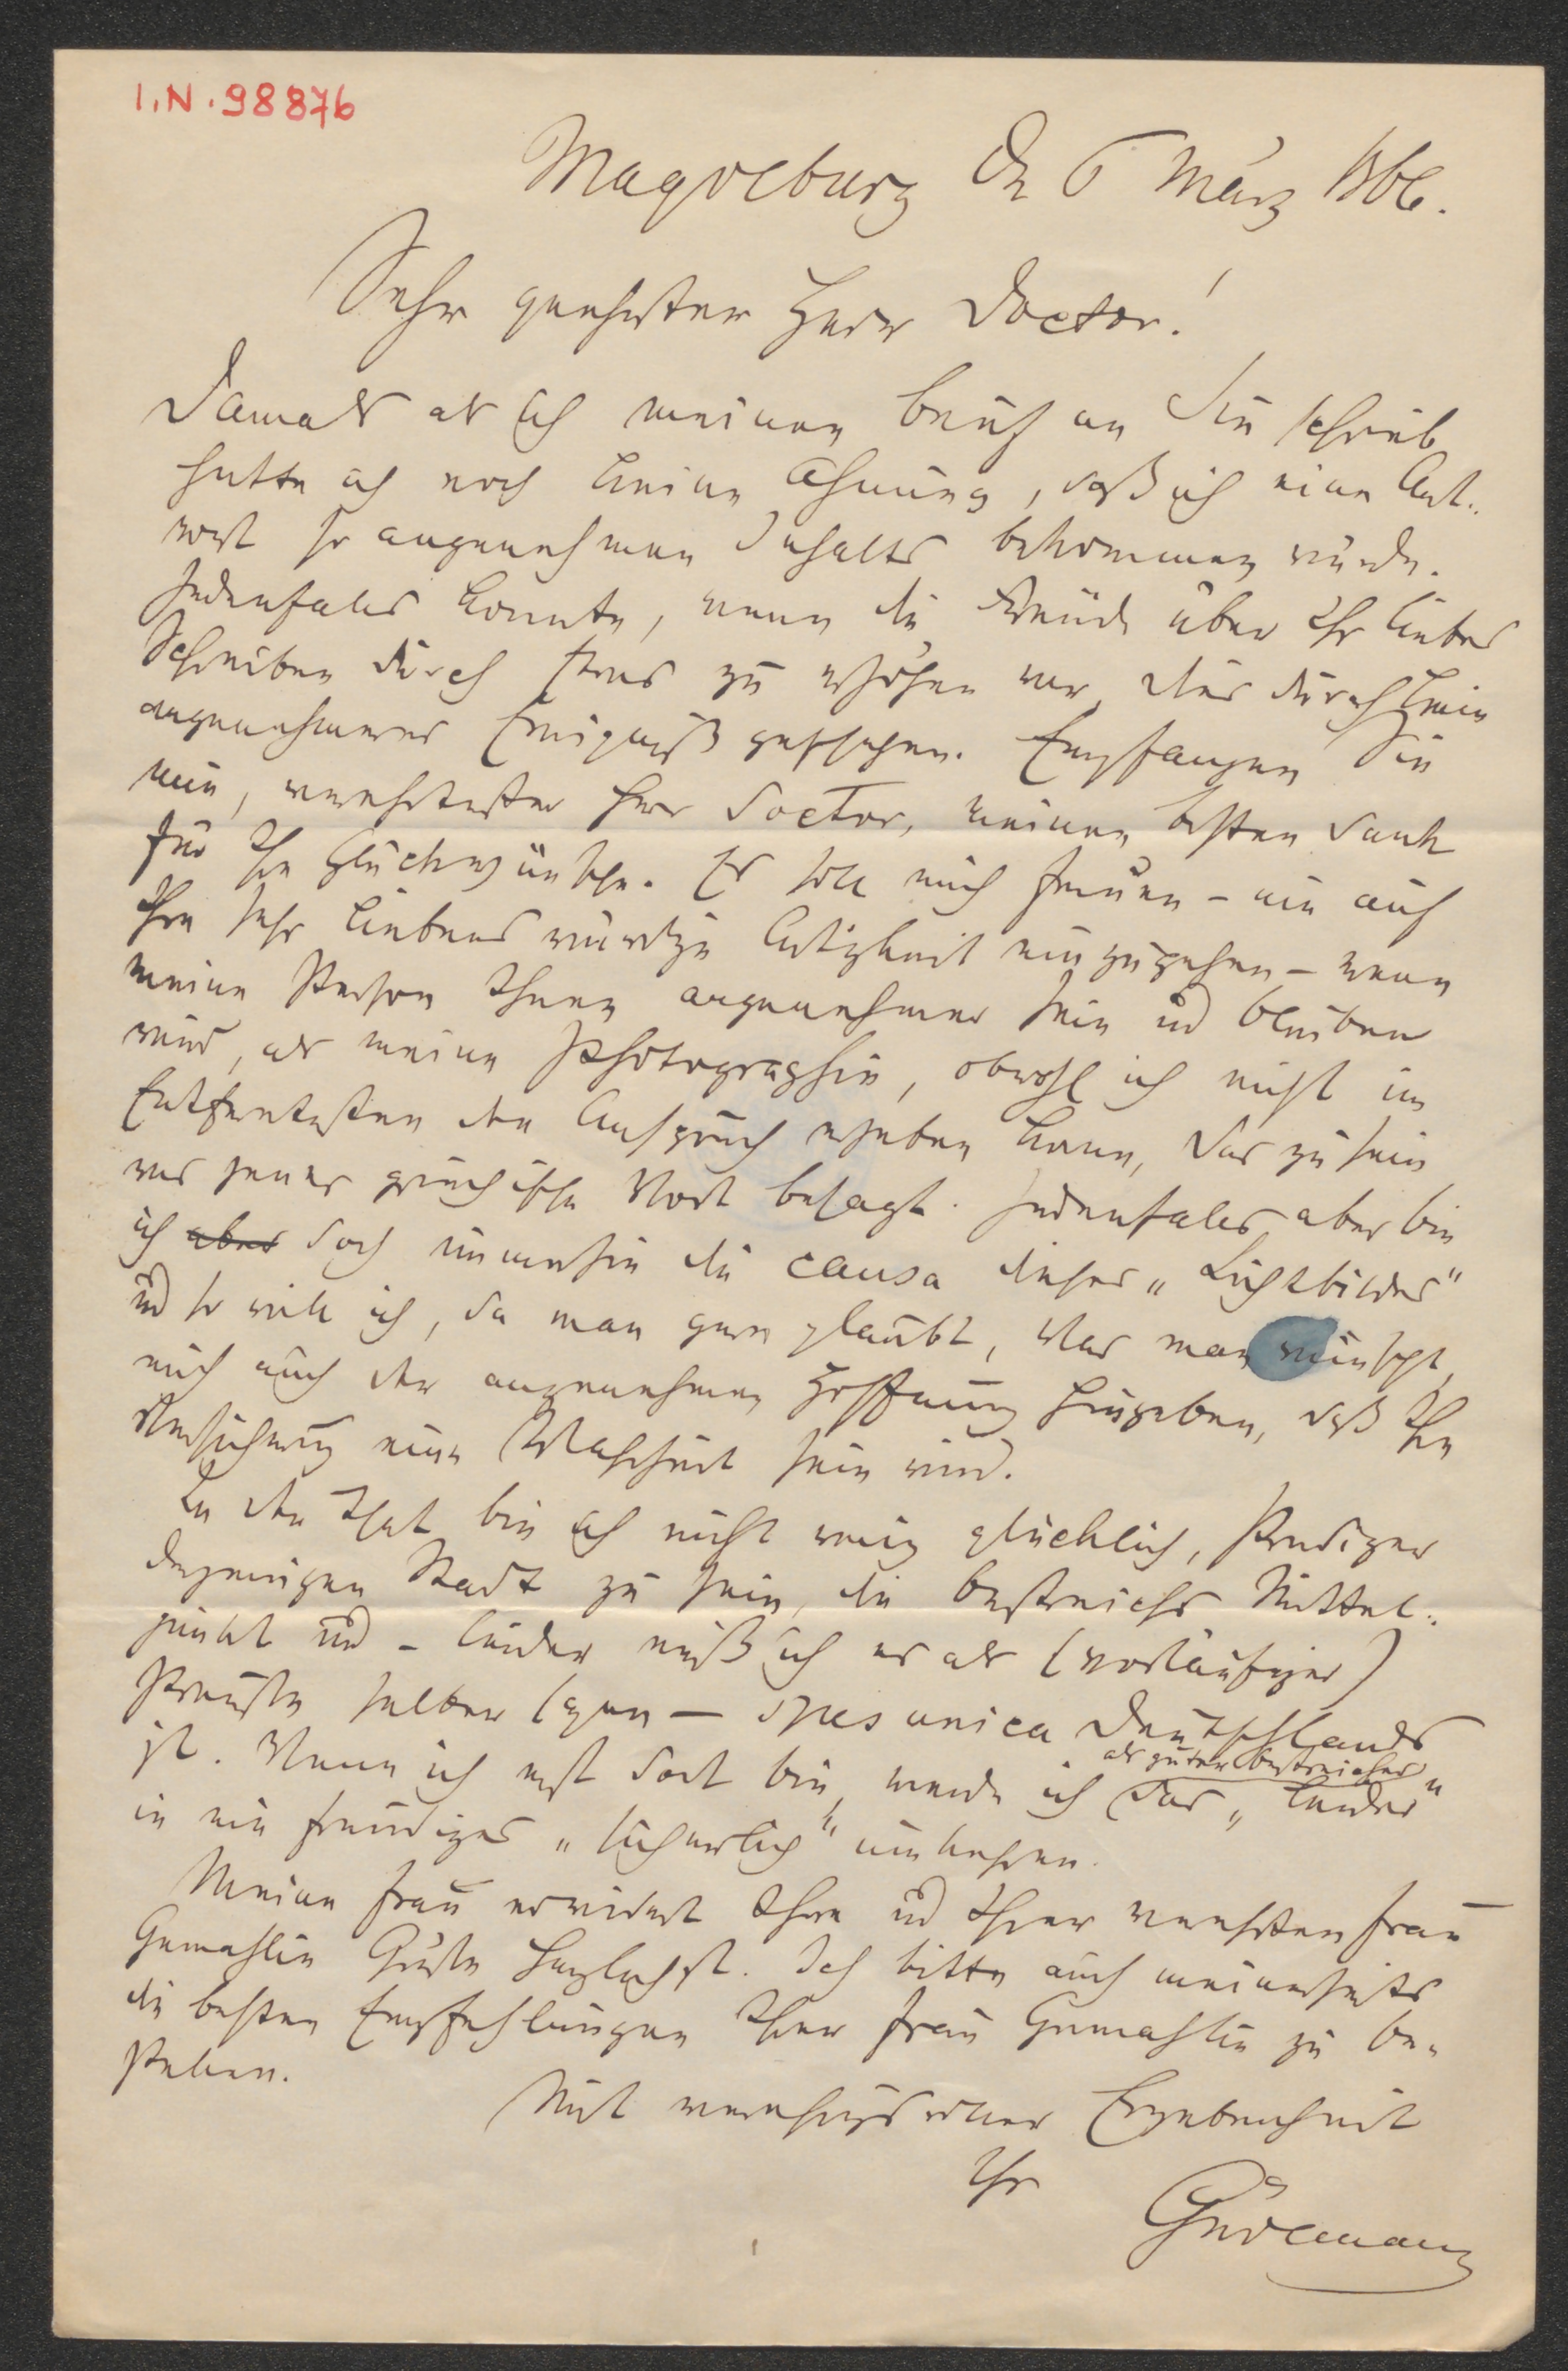 I.N. 98876
Magdeburg d 6 März 1866.
Sehr geehrter Herr Doctor!
Damals als ich meinen Brief an Sie schrieb
hatte ich noch keine Ahnung, daß ich eine Ant-
wort so angenehmen Inhalts bekommen würde.
Jedenfalls konnte, wenn die Freude über Ihr liebes
Schreiben durch etwas zu erhöhen war, dies durch kein
angenehmeres Ereigniß geschehen. Empfangen Sie
nun, verehrtester Herr Doctor, meinen besten Dank
für Ihre Glückwünsche. Es soll mich freuen – um auf
Ihre sehr liebenswürdige Artigkeit einzugehen – wenn
meine Person Ihnen angenehmer sein und bleiben
wird, als meine Photographie, obwohl ich nicht im
Entferntesten den Anspruch erheben kann, das zu sein
was jenes griechische Wort besagt. Jedenfalls aber bin
ich aber doch immerhin die causa dieses „Lichtbildes"
und so will ich, da man gern glaubt, was man wünscht,
mich auch der angenehmen Hoffnung hingeben, daß Ihre
Versicherung eine Wahrheit sein wird.
In der That bin ich nicht wenig glücklich, Prediger
derjenigen Stadt zu sein, die Oestreichs Mittel-
punkt und – leider muß ich es als (vorläufiger)
Preuße selber sagen – spes unica Deutschlands
ist. Wenn ich erst dort bin, werde ich als guter Oestreicher das „leider"
in ein freudiges „sicherlich" umkehren.
Meine Frau erwidert Ihre und Ihrer verehrten Frau
Gemahlin Grüße herzlichst. Ich bitte auch meinerseits
die besten Empfehlungen Ihrer Frau Gemahlin zu be-
stellen.
Mit verehrungsvoller Ergebenheit
Ihr
Güdemann